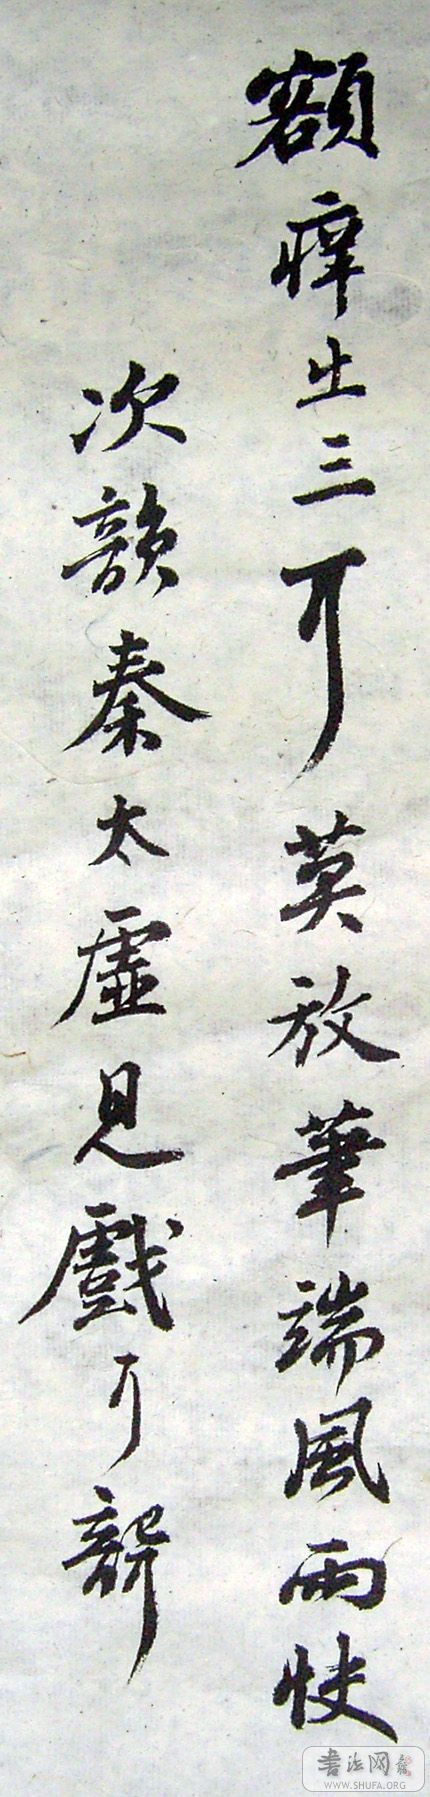 額痒出三耳莫放筆端風雨快
次韻秦太虛見戲耳聾
书法网
WWW.SHUFA.ORG